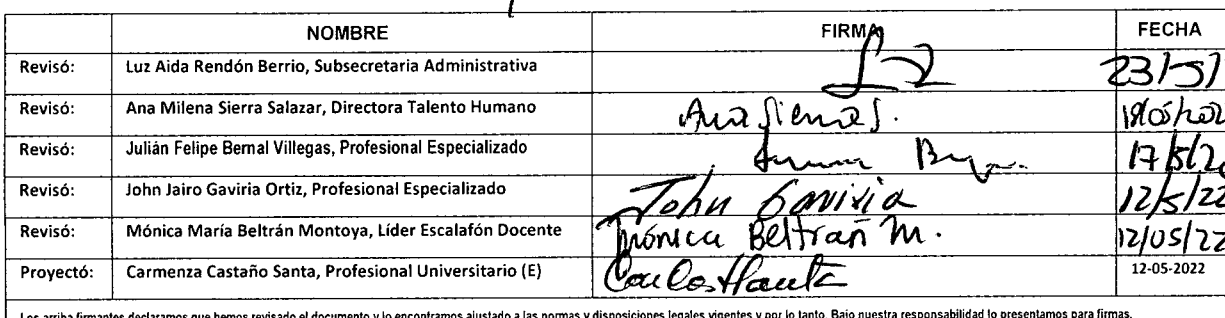 NOMBRE FIRMA FECHA
Revisó: Luz Aida Rendón Berrio, Subsecretaria Administrativa 23/5/
Revisó: Ana Milena Sierra Salazar, Directora Talento Humano Ana Sierra S. 18/05/202
Revisó: Julián Felipe Bernal Villegas, Profesional Especializado 17/5/2
Revisó: John Jairo Gaviria Ortiz, Profesional Especializado John Gaviria 12/5/22
Revisó: Mónica María Beltrán Montoya, Líder Escalafón Docente Mónica Beltrán M. 12/05/22
Proyectó: Carmenza Castaño Santa, Profesional Universitario (E) 12-05-2022
Los arriba firmantes declaramos que hemos revisado el documento y lo encontramos ajustado a las normas y disposiciones legales vigentes y por lo tanto. Bajo nuestra responsabilidad lo presentamos para firmas.